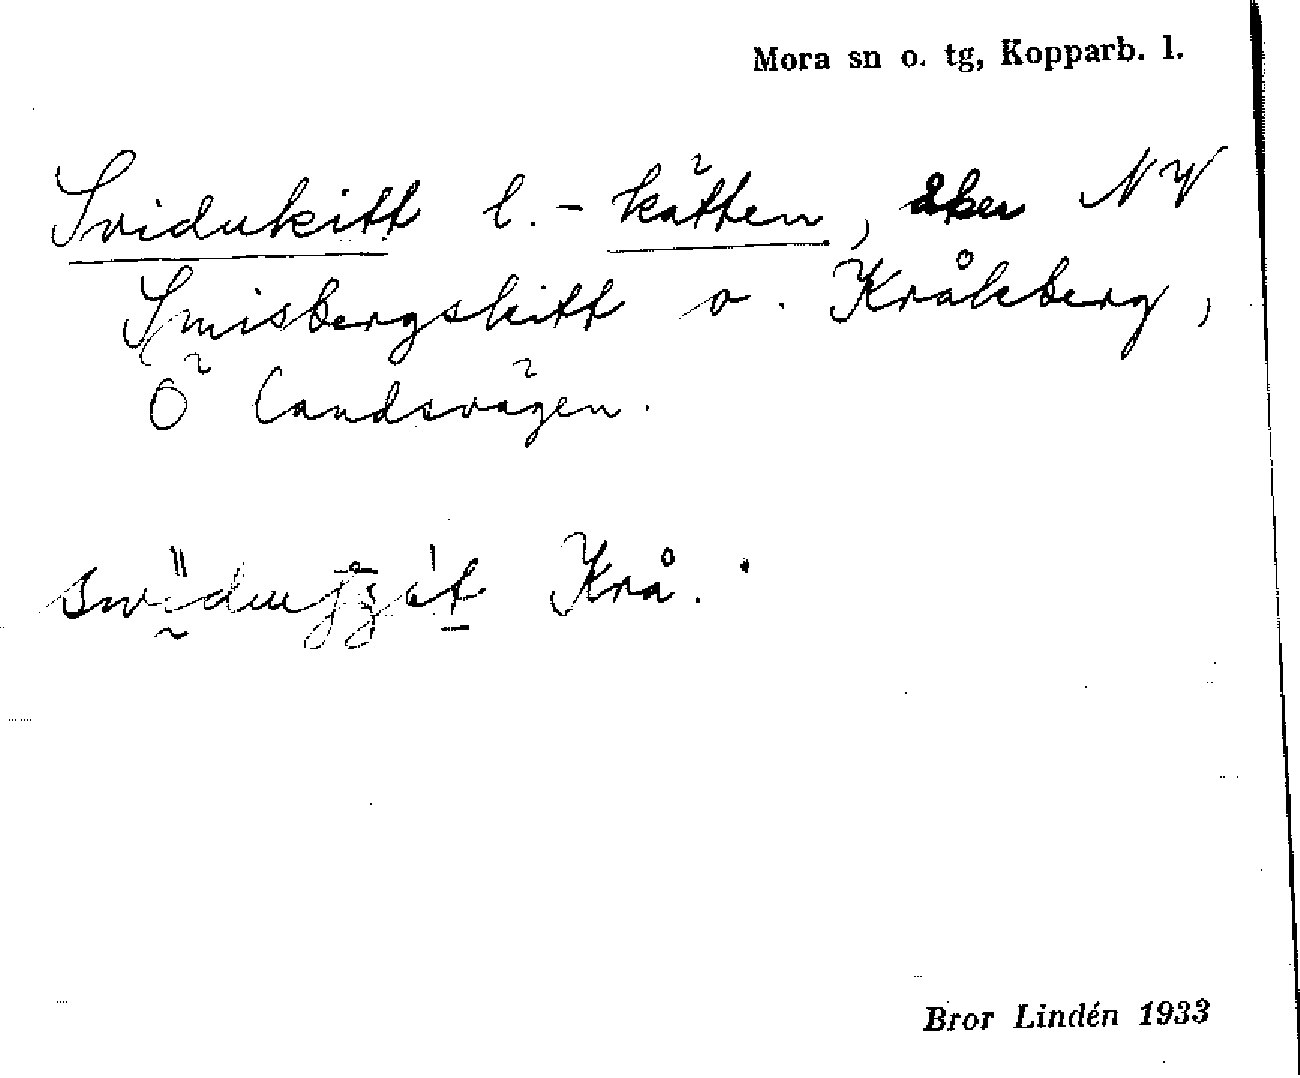 Mora sn o. tg, Kopparb. l.
Svidukitt l. -kätten, åker NV
Smisbergskitt o. Kråkberg,
Ö landsvägen.
Krå.
Bror Lindén 1933